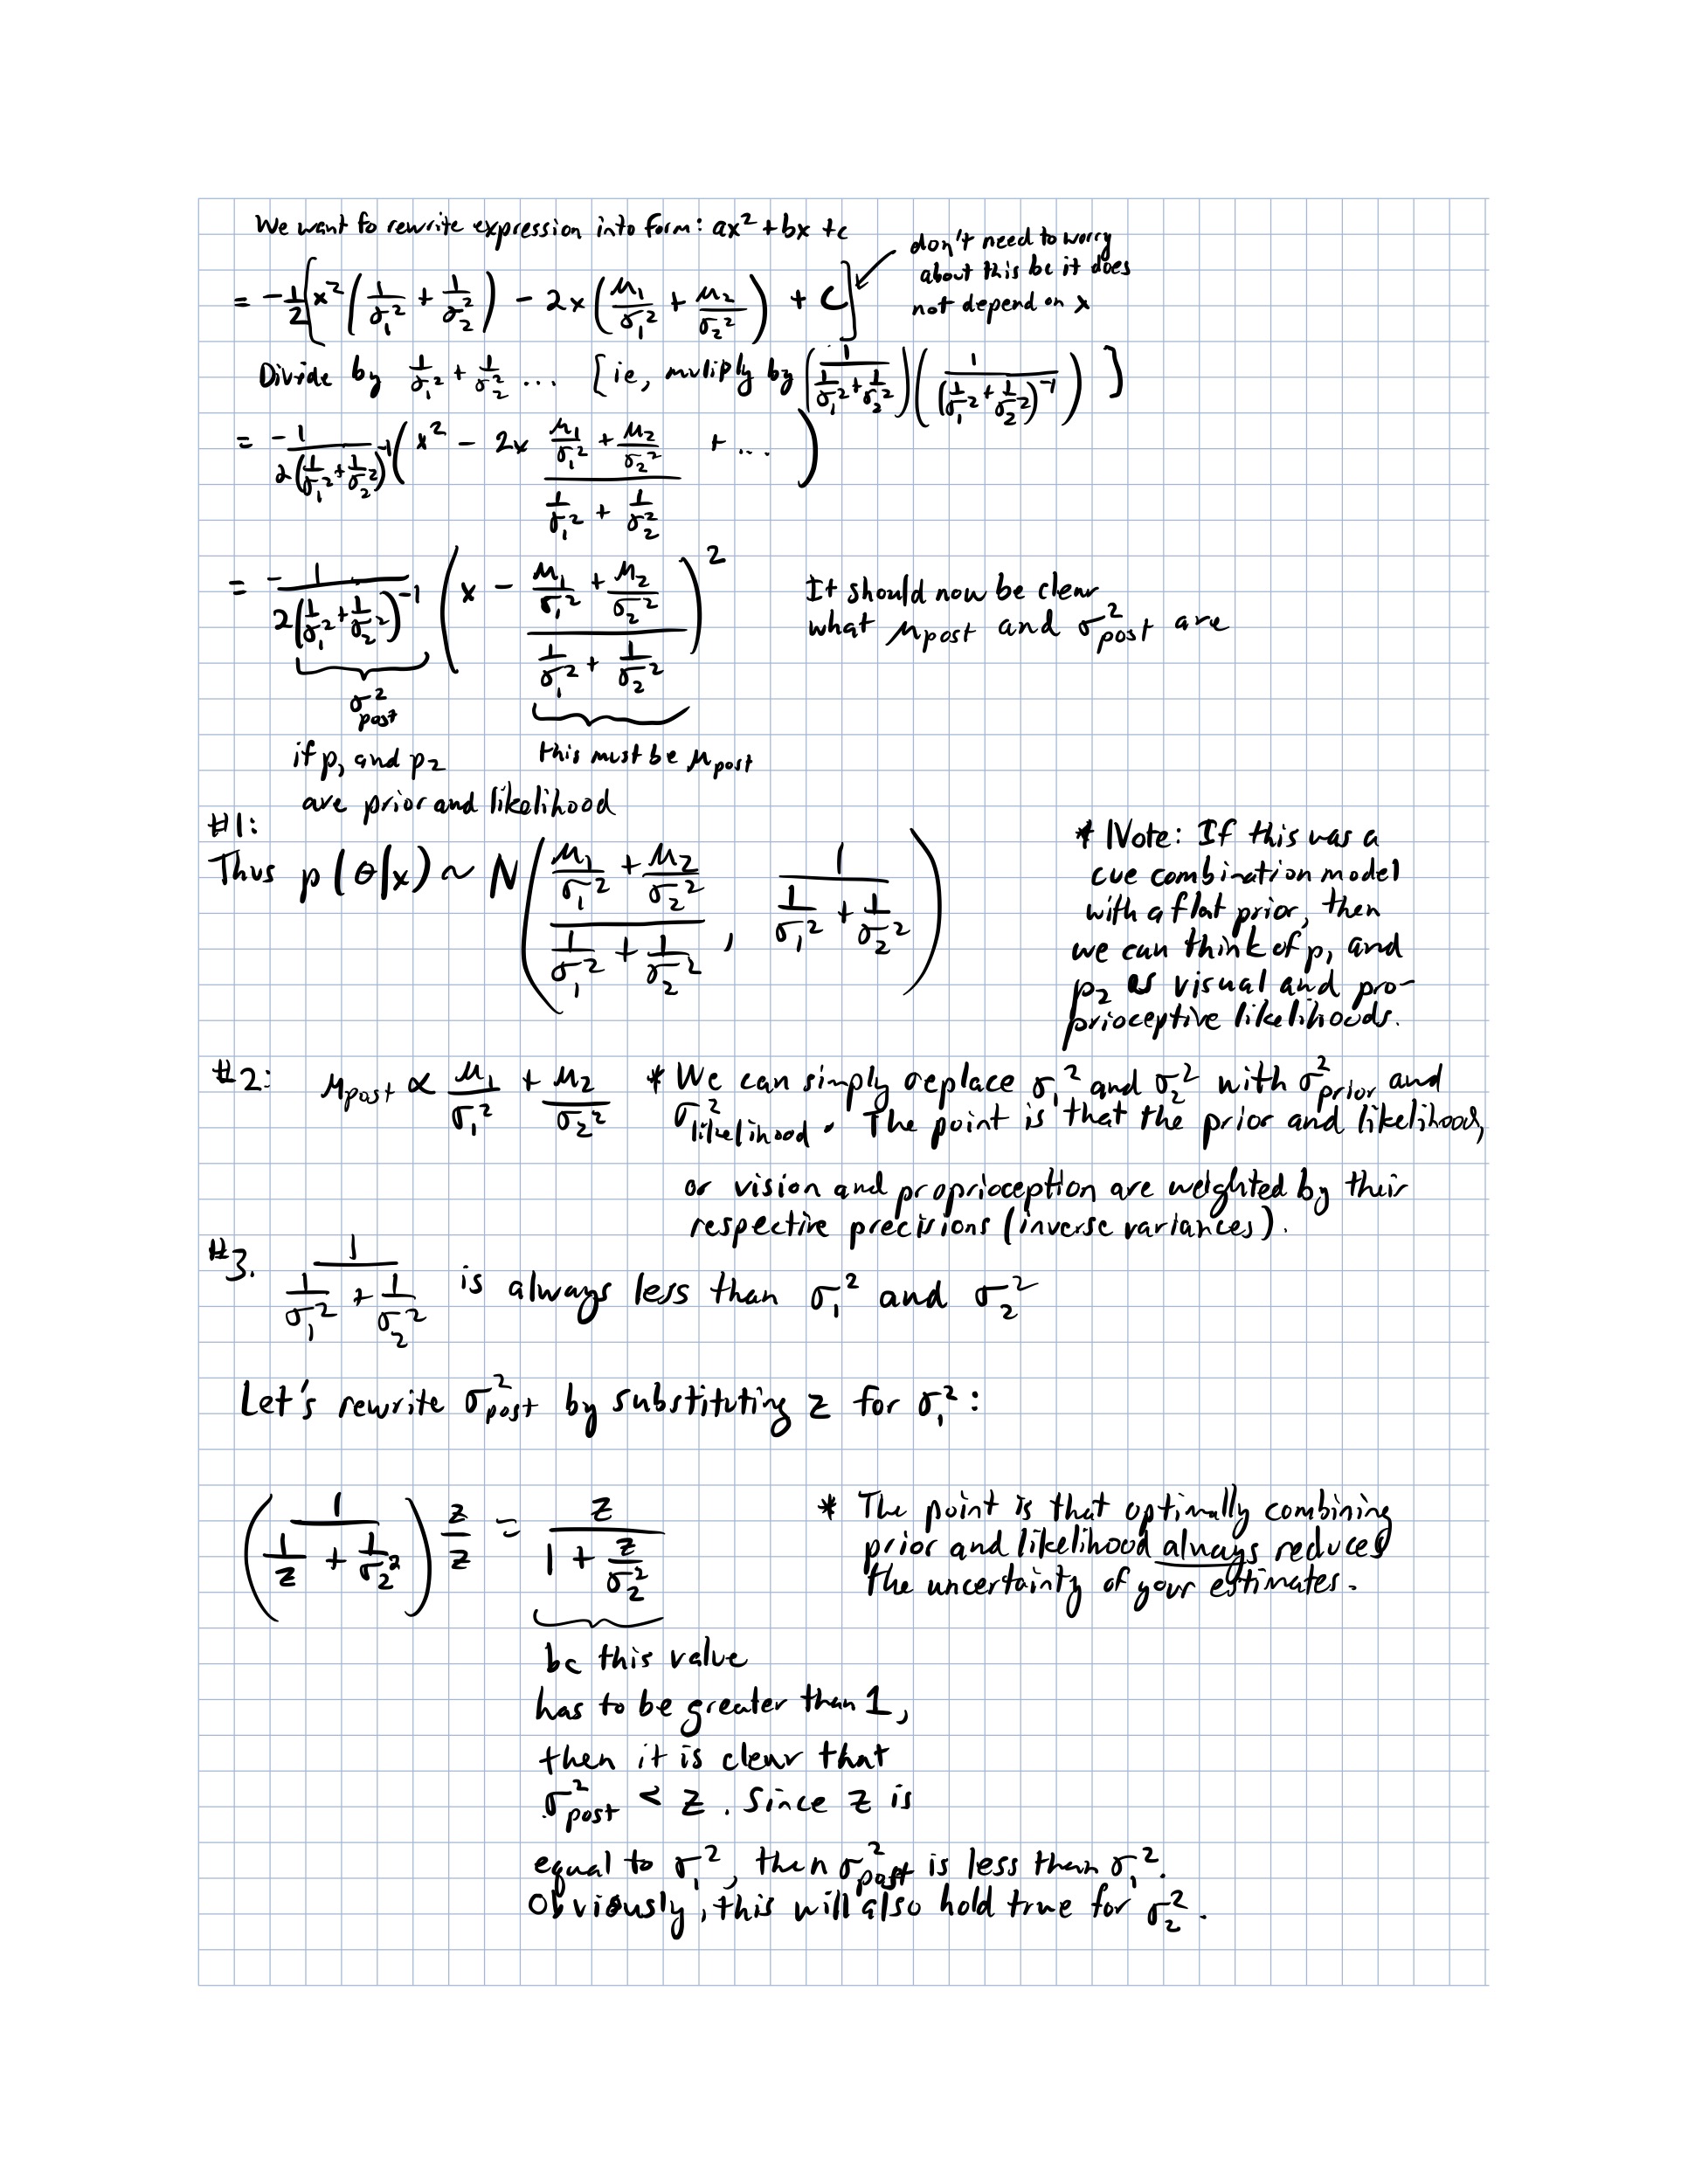 We want to rewrite expression into form: ax² + bx + c
don't need to worry
about this bc it does
not depend on x
= -1/2 [x² (1/σ₁² + 1/σ₂²) - 2x (μ₁/σ₁² + μ₂/σ₂²) + C]
Divide by 1/σ₁² + 1/σ₂² ... [ie, muliply by (1/(1/σ₁² + 1/σ₂²)) (1/(1/σ₁² + 1/σ₂²)⁻¹) ]
= -1/(2(1/σ₁² + 1/σ₂²)⁻¹) (x² - 2x (μ₁/σ₁² + μ₂/σ₂²)/(1/σ₁² + 1/σ₂²) + ... )
= -1/(2(1/σ₁² + 1/σ₂²)⁻¹) (x - (μ₁/σ₁² + μ₂/σ₂²)/(1/σ₁² + 1/σ₂²))²
It should now be clear
what μpost and σ²post are
σ²post
if p₁ and p₂
are prior and likelihood
this must be μpost
#1:
Thus p(θ|x) ~ N((μ₁/σ₁² + μ₂/σ₂²)/(1/σ₁² + 1/σ₂²), 1/(1/σ₁² + 1/σ₂²))
* Note: If this was a
cue combination model
with a flat prior, then
we can think of p₁ and
p₂ as visual and pro-
prioceptive likelihoods.
#2: μpost ∝ μ₁/σ₁² + μ₂/σ₂²
* We can simply replace σ₁² and σ₂² with σ²prior and
σ²likelihood. The point is that the prior and likelihood,
or vision and proprioception are weighted by their
respective precisions (inverse variances).
#3. 1/(1/σ₁² + 1/σ₂²) is always less than σ₁² and σ₂²
Let's rewrite σ²post by substituting z for σ₁²:
(1/(1/z + 1/σ₂²)) z/z = z/(1 + z/σ₂²)
* The point is that optimally combining
prior and likelihood always reduces
the uncertainty of your estimates.
bc this value
has to be greater than 1,
then it is clear that
σ²post < z. Since z is
equal to σ₁², then σ²post is less than σ₁².
Obviously, this will also hold true for σ₂².